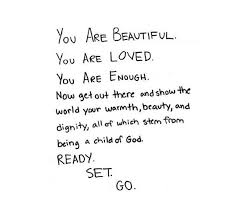 You Are Beautiful.
You Are Loved.
You Are Enough.
Now get out there and show the
world your warmth, beauty, and
dignity, all of which stem from
being a child of God.
READY.
SET.
GO.